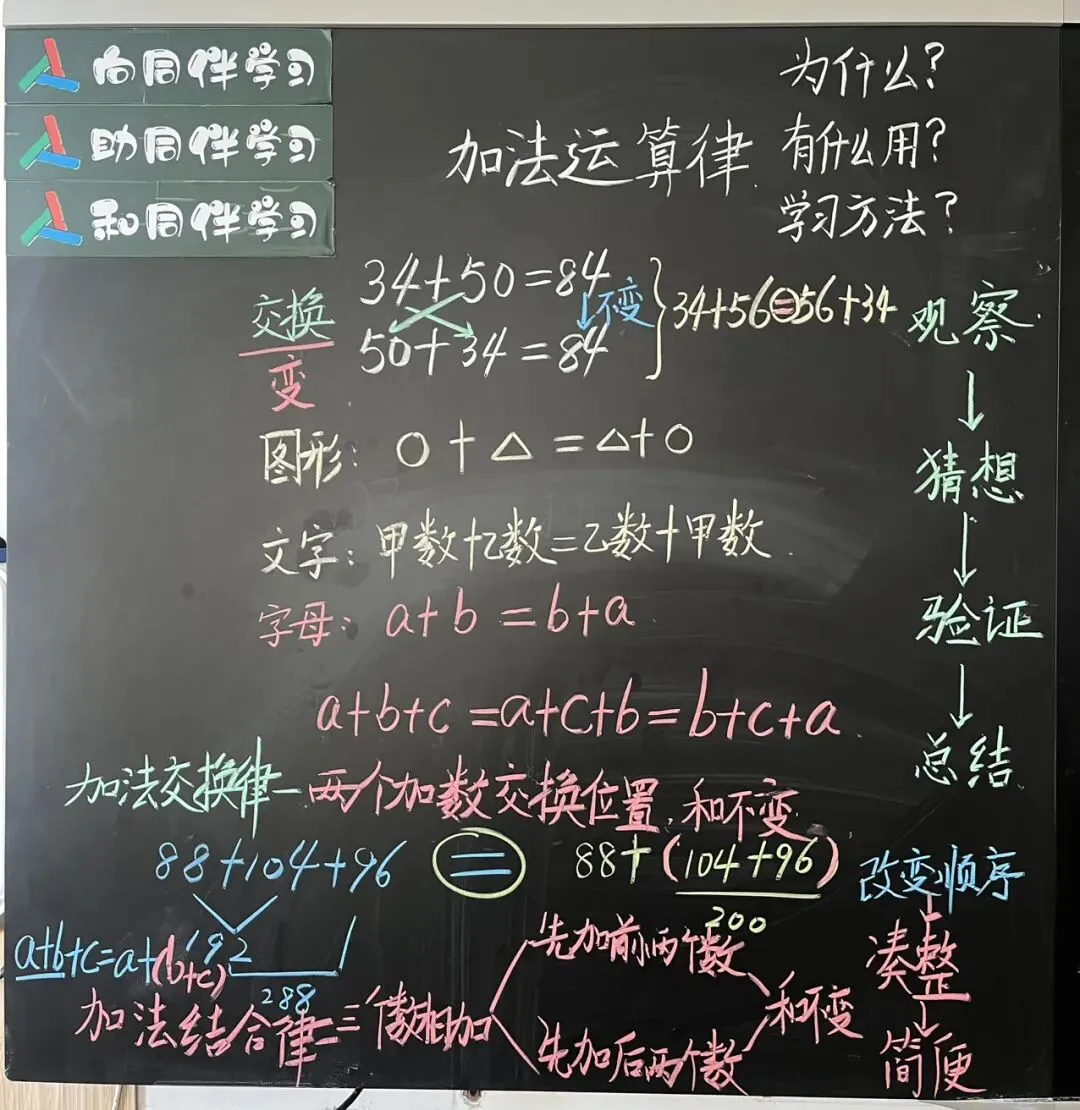 向同伴学习
助同伴学习
和同伴学习
为什么?
有什么用?
学习方法?
加法运算律
交换
变
34+50=84
不变
50+34=84
34+56=56+34
观察
↓
猜想
↓
验证
↓
总结
图形: ○+△=△+○
文字: 甲数+乙数=乙数+甲数
字母: a+b=b+a
a+b+c=a+c+b=b+c+a
加法交换律-两个加数交换位置,和不变
88+104+96 = 88+(104+96)
200
192
288
a+b+c=a+(b+c)
加法结合律=三个数相加
先加前两个数
先加后两个数
和不变
改变顺序
↓
凑整
↓
简便